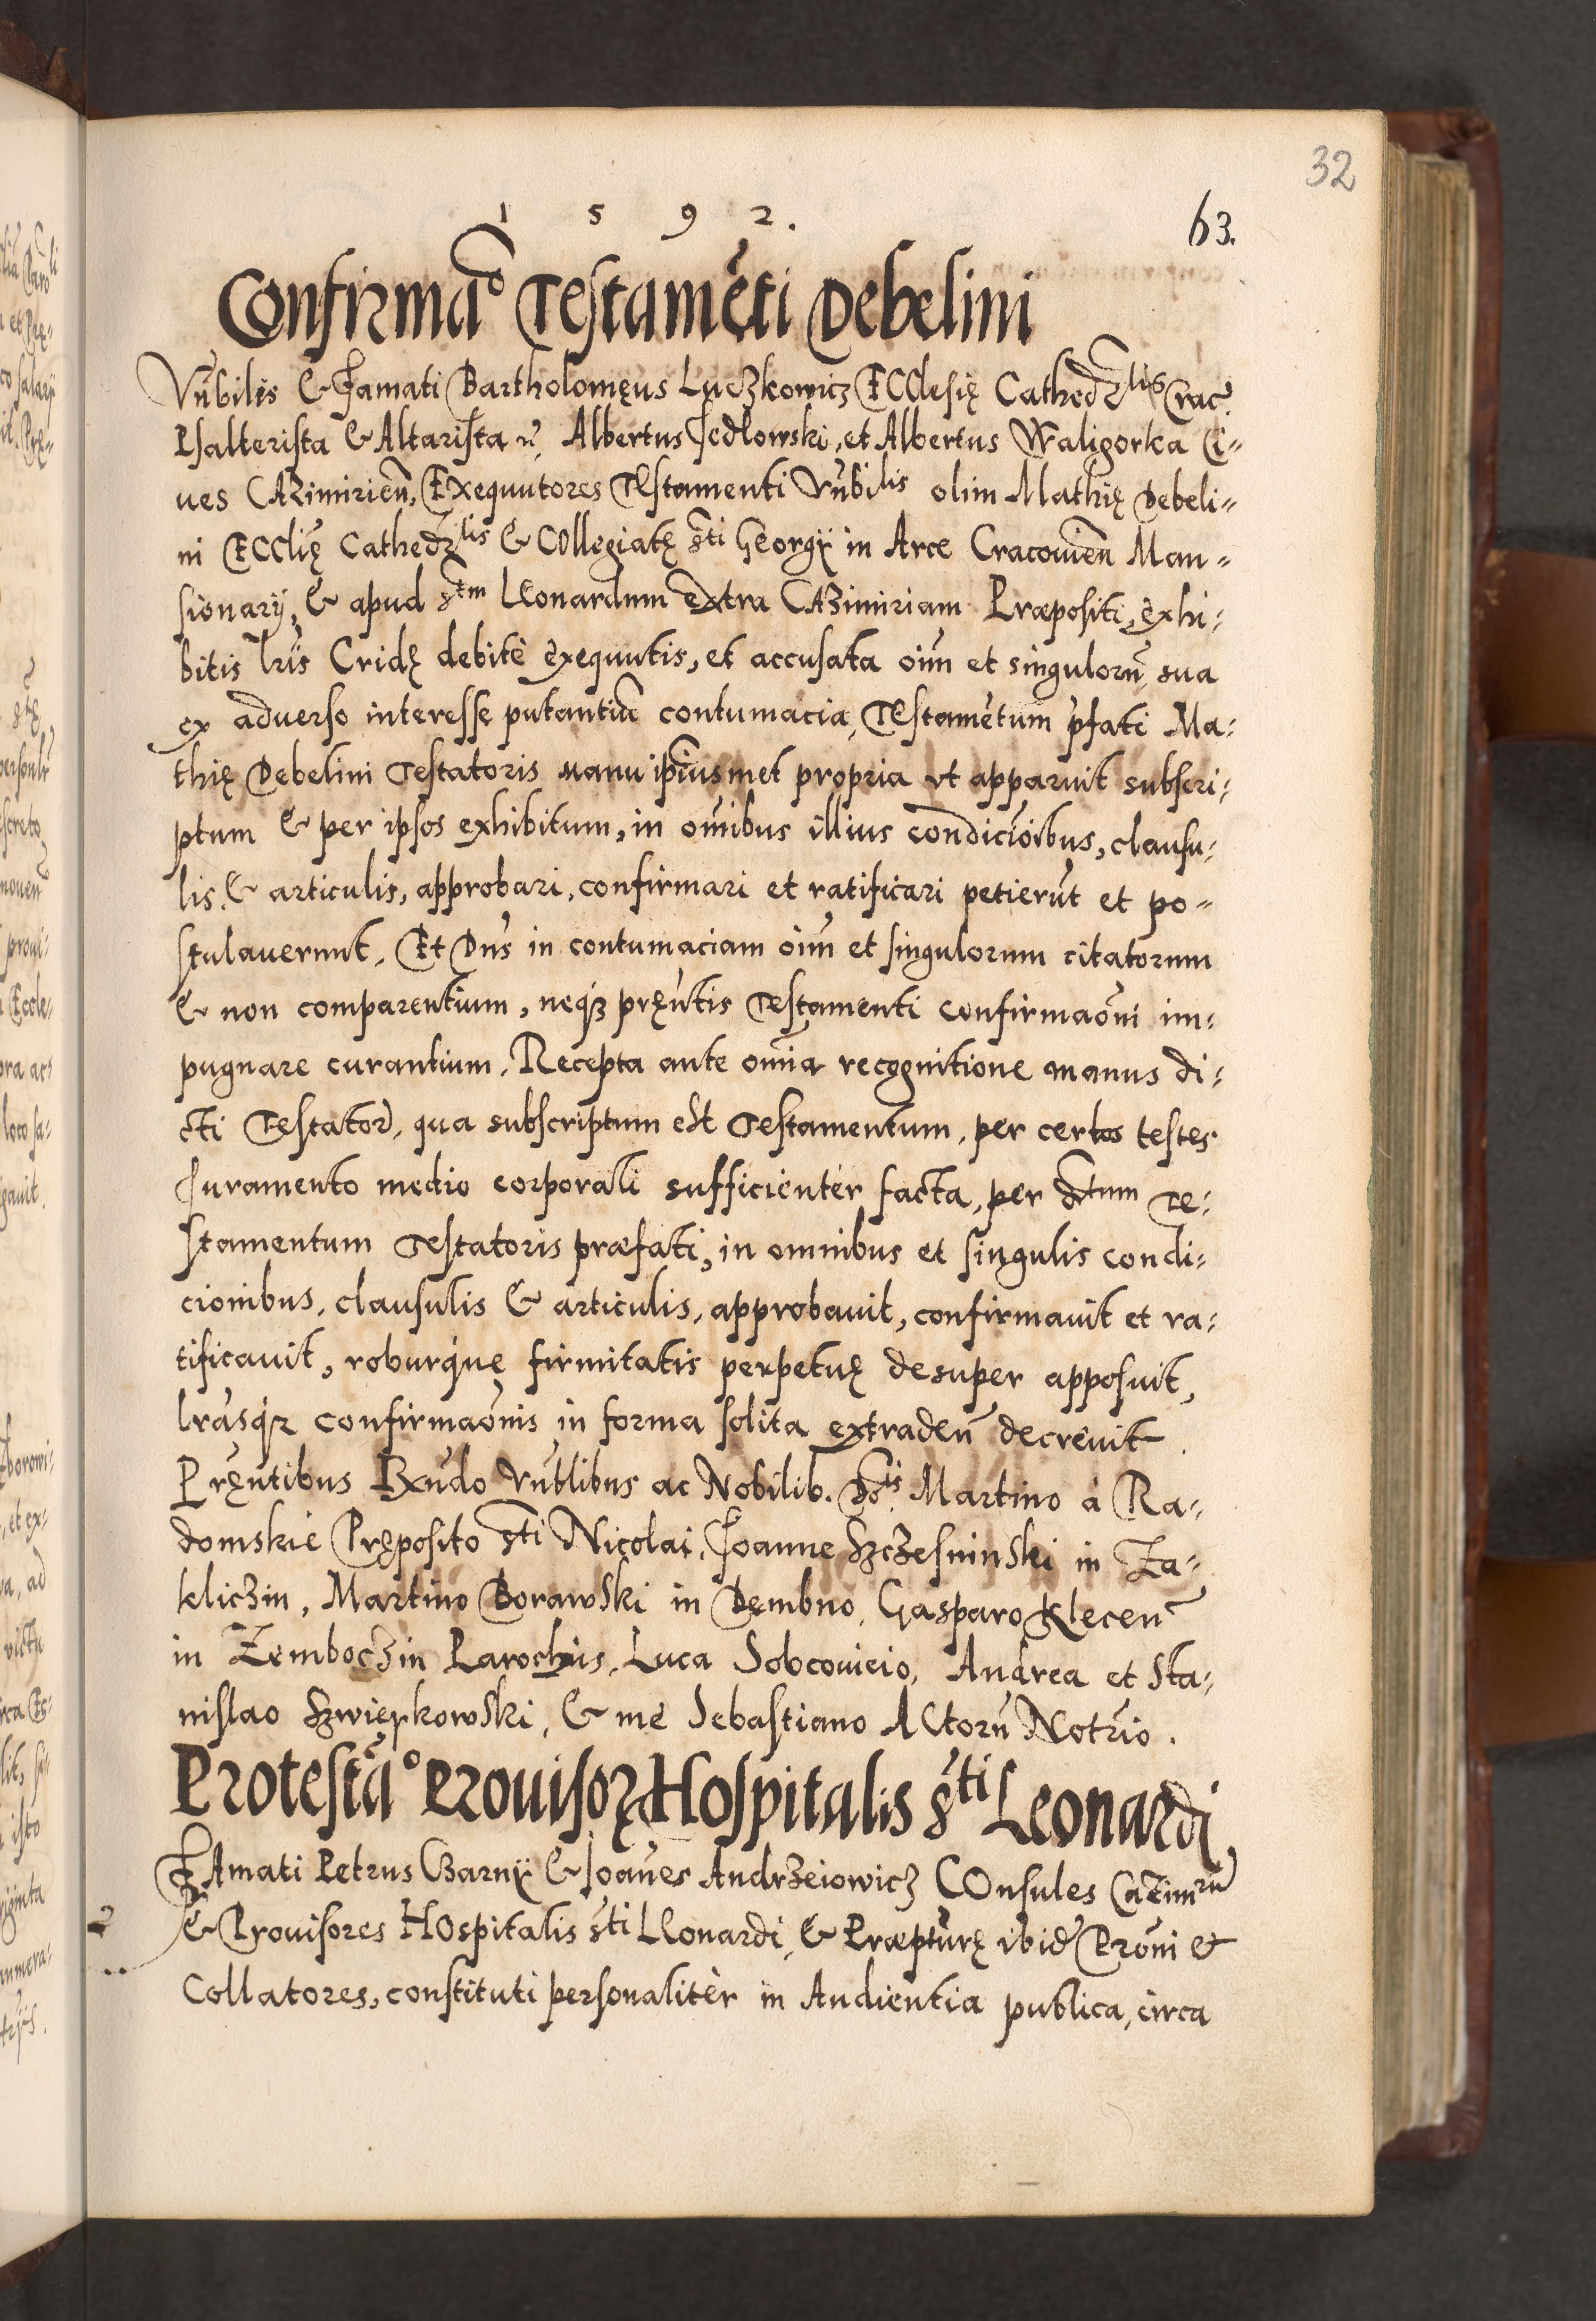 32
1 5 9 2.
63.
Confirmaõ Testamẽti Debelini
Vñbilis & Famati Bartholomęus Luczkowicz Ecclesię Cathedrlis Crac.
Psalterista & Altarista Albertus Jedlowski, et Albertus Waligorka Ci-
ues Cazimirieñ, Exequutores Testamenti Vñbilis olim Mathię Debeli-
ni Ecclię Cathedrlis & Collegiatę Sti Georgij in Arce Cracouieñ Man-
sionarij, & apud Stm Leonardum extra Cazimiriam Præpositi, exhi-
bitis lr̃is Cridę debitè exequutis, et accusata oĩm et singuloru᷉, sua
ex aduerso interesse putantiũ contumacia, Testamẽtum p̃fati Ma-
thię Debelini Testatoris manu ip̃iusmet propria vt apparuit subscri-
ptum & per ipsos exhibitum, in om̃ibus illius condicio᷉ibus, clausu-
lis, & articulis, approbari, confirmari et ratificari petierũt et po-
stulauerunt, Et Dñs in contumaciam oĩm et singulorum citatorum
& non comparentium, neqз pręñtis Testamenti confirmaõni im-
pugnare curantium, Recepta ante om̃ia recognitione manus di-
cti Testator, qua subscriptum est Testamentum, per certos testes
Juramento medio corporali sufficientèr facta, per dctum Te-
stamentum Testatoris præfati, in omnibus et singulis condi-
cionibus, clausulis & articulis, approbauit, confirmauit et ra-
tificauit, roburq́ue firmitatis perpetuę desuper apposuit,
lr̃asqз confirmaõnis in forma solita extradeñ decreuit.
Pręñtibus Rx̃ndo Vñblibus ac Nobilib. Dñis Martino à Ra-
domskie Pręposito Sti Nicolai, Joanne Szczesninski in Za-
kliczin, Martino Borawski in Dembno, Gasparo Klecen̄
in Zemboczin Parochis, Luca Sobcouicio, Andrea et Sta-
nislao Szwięykowski, & me Sebastiano Actoru᷉ Notr̃io.
Protestãõ Prouisoꝝ Hospitalis Sti Leonardi
Famati Petrus Czarnÿ & Joañes Andrzeiowicz Consules Cazimrñ
& Prouisores Hospitalis Sti Leonardi, & Præptũrę ibid Prõni et
Collatores, constituti personalitèr in Audientia publica, circa